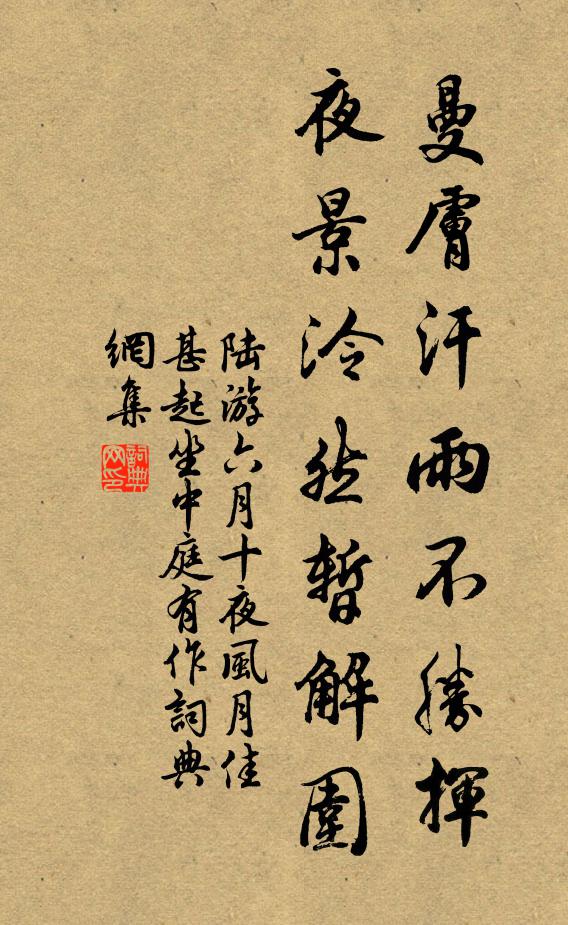 曼膚汗雨不勝揮
夜景泠然暫解圍
陆游六月十夜風月佳
甚起坐中庭有作詞典
網集
詞典
网印